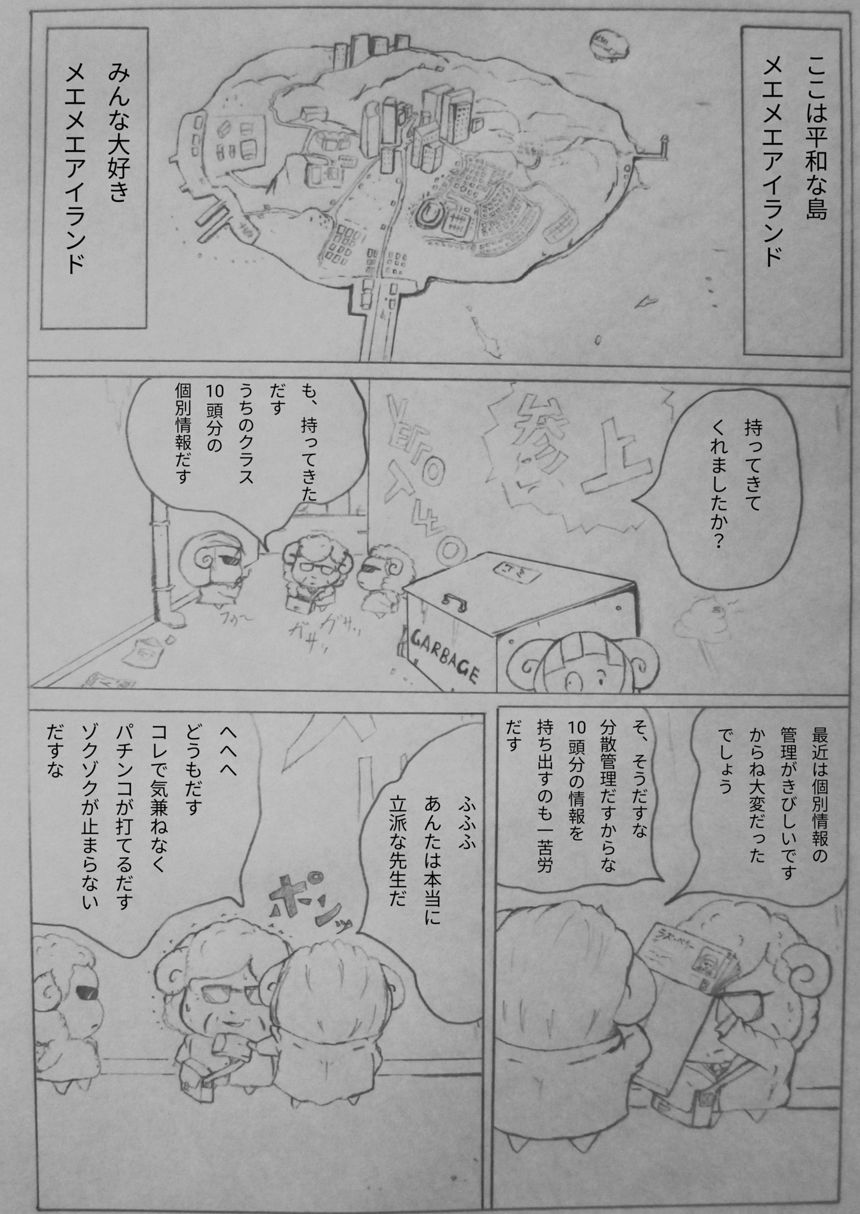 ここは平和な島
メエメエアイランド
みんな大好き
メエメエアイランド
持ってきて
くれましたか?
参上
も、持ってきた
だす
うちのクラス
10頭分の
個別情報だす
ガサッ
ガサッ
GARBAGE
最近は個別情報の
管理がきびしいです
からね大変だった
でしょう
そ、そうだすな
分散管理だすからな
10頭分の情報を
持ち出すのも一苦労
だす
ふふふ
あんたは本当に
立派な先生だ
ポンッ
へへへ
どうもだす
コレで気兼ねなく
パチンコが打てるだす
ゾクゾクが止まらない
だすな